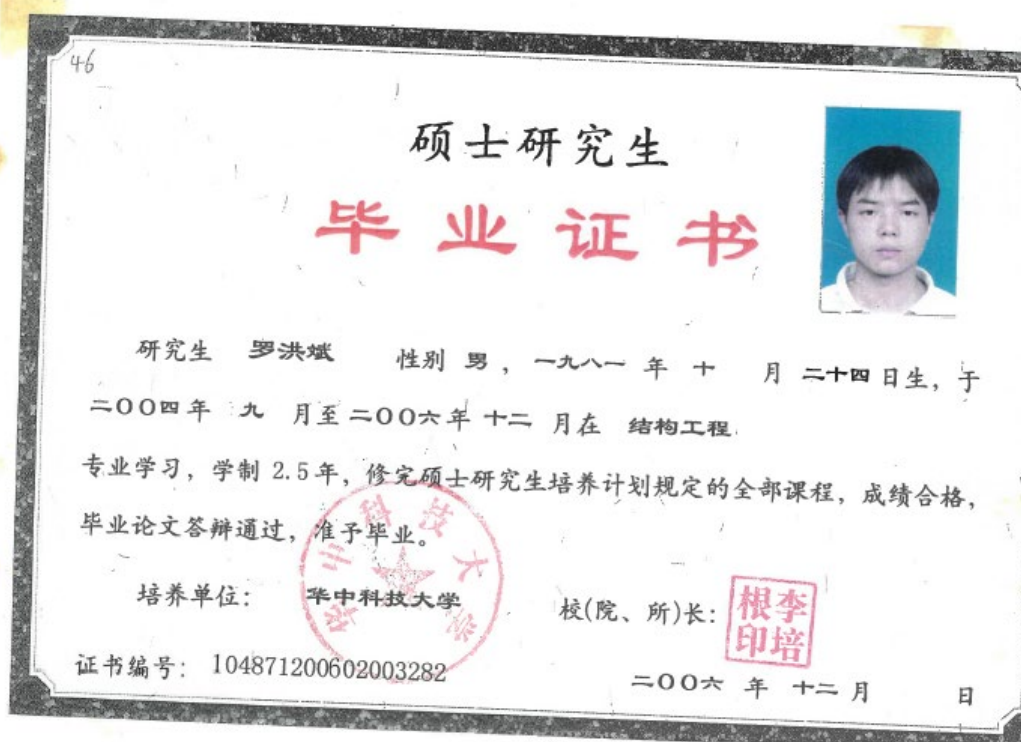 46
硕士研究生
毕业证书
研究生 罗洪斌 性别 男，一九八一 年 十 月 二十四日生，于
二〇〇四年 九 月至二〇〇六年 十二 月在 结构工程
专业学习，学制 2.5年，修完硕士研究生培养计划规定的全部课程，成绩合格，
毕业论文答辩通过，准予毕业。
华中科技大学
培养单位： 华中科技大学
校(院、所)长：
李培根印
证书编号： 104871200602003282
二〇〇六 年 十二 月 日